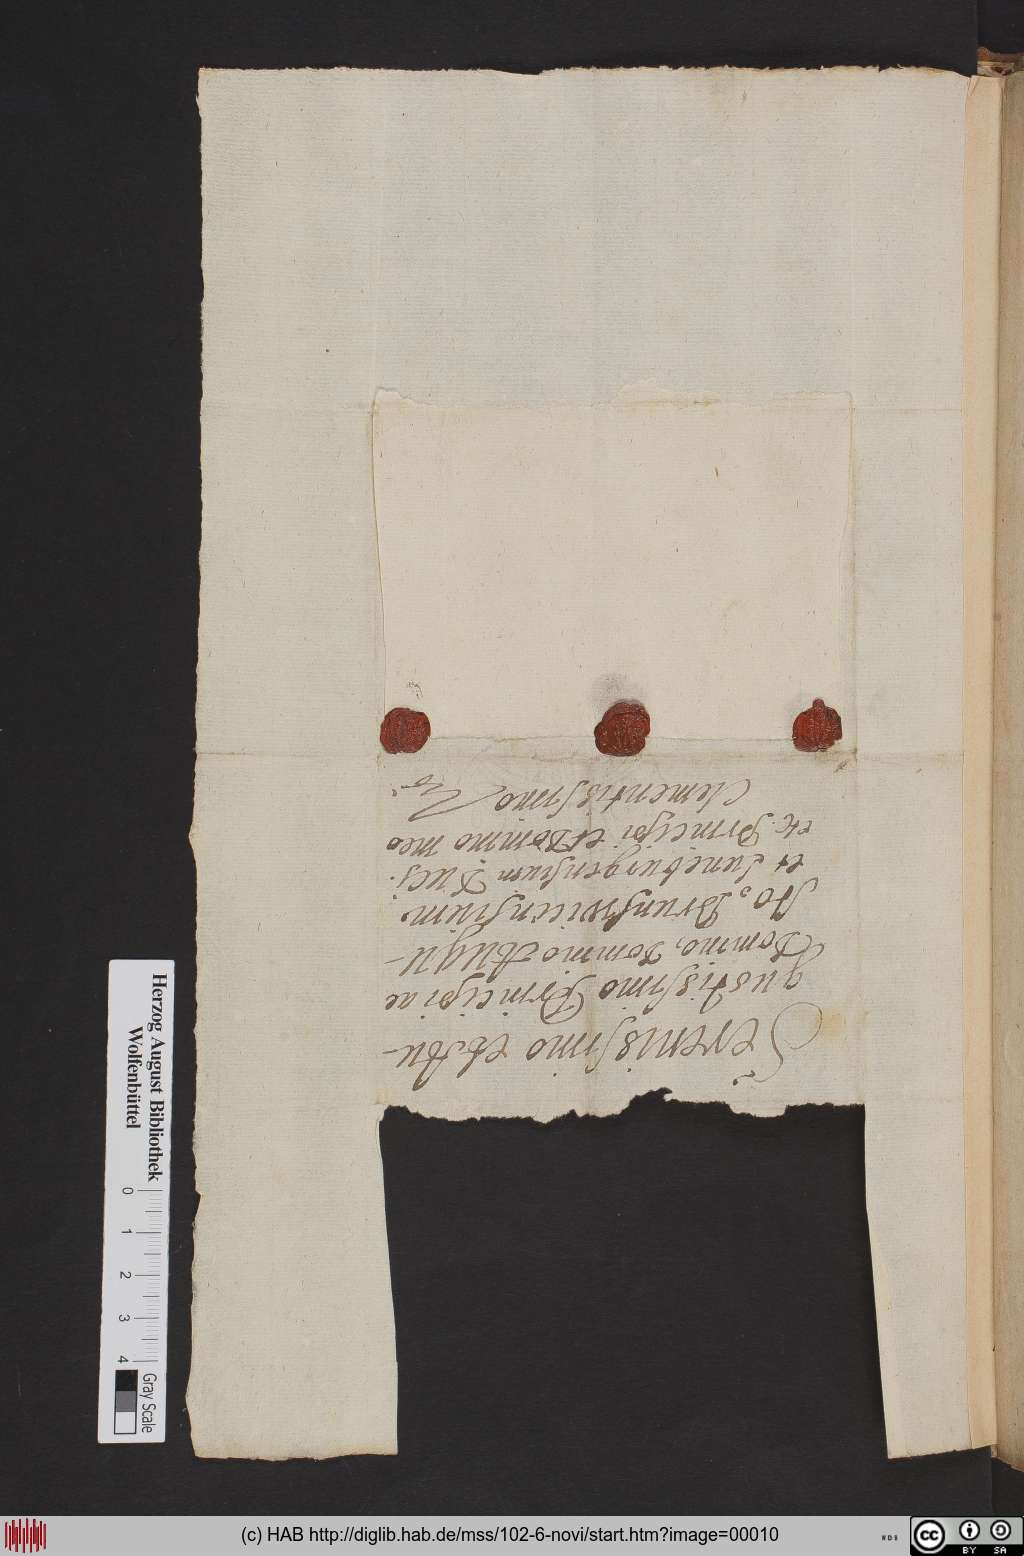 Serenissimo et Au-
gustissimo Principi ac
Domino, Domino Augu-
sto, Brunswicensium
et Luneburgensium Duci.
etc. Principi et Domino meo
Clementissimo
Herzog August Bibliothek
Wolfenbüttel
0 1 2 3 4
Gray Scale
(c) HAB http://diglib.hab.de/mss/102-6-novi/start.htm?image=00010
WDB
cc
BY SA